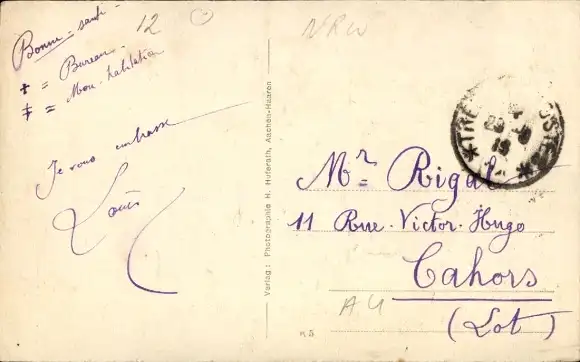 Bonne santé
‡ = Bureau
‡ = Mon habitation
Je vous embrasse
Louis
12
NRW
Verlag: Photographie H. Huferath, Aachen-Haaren
Mr Rigal
11 Rue Victor Hugo
Cahors
(Lot)
A4
K5